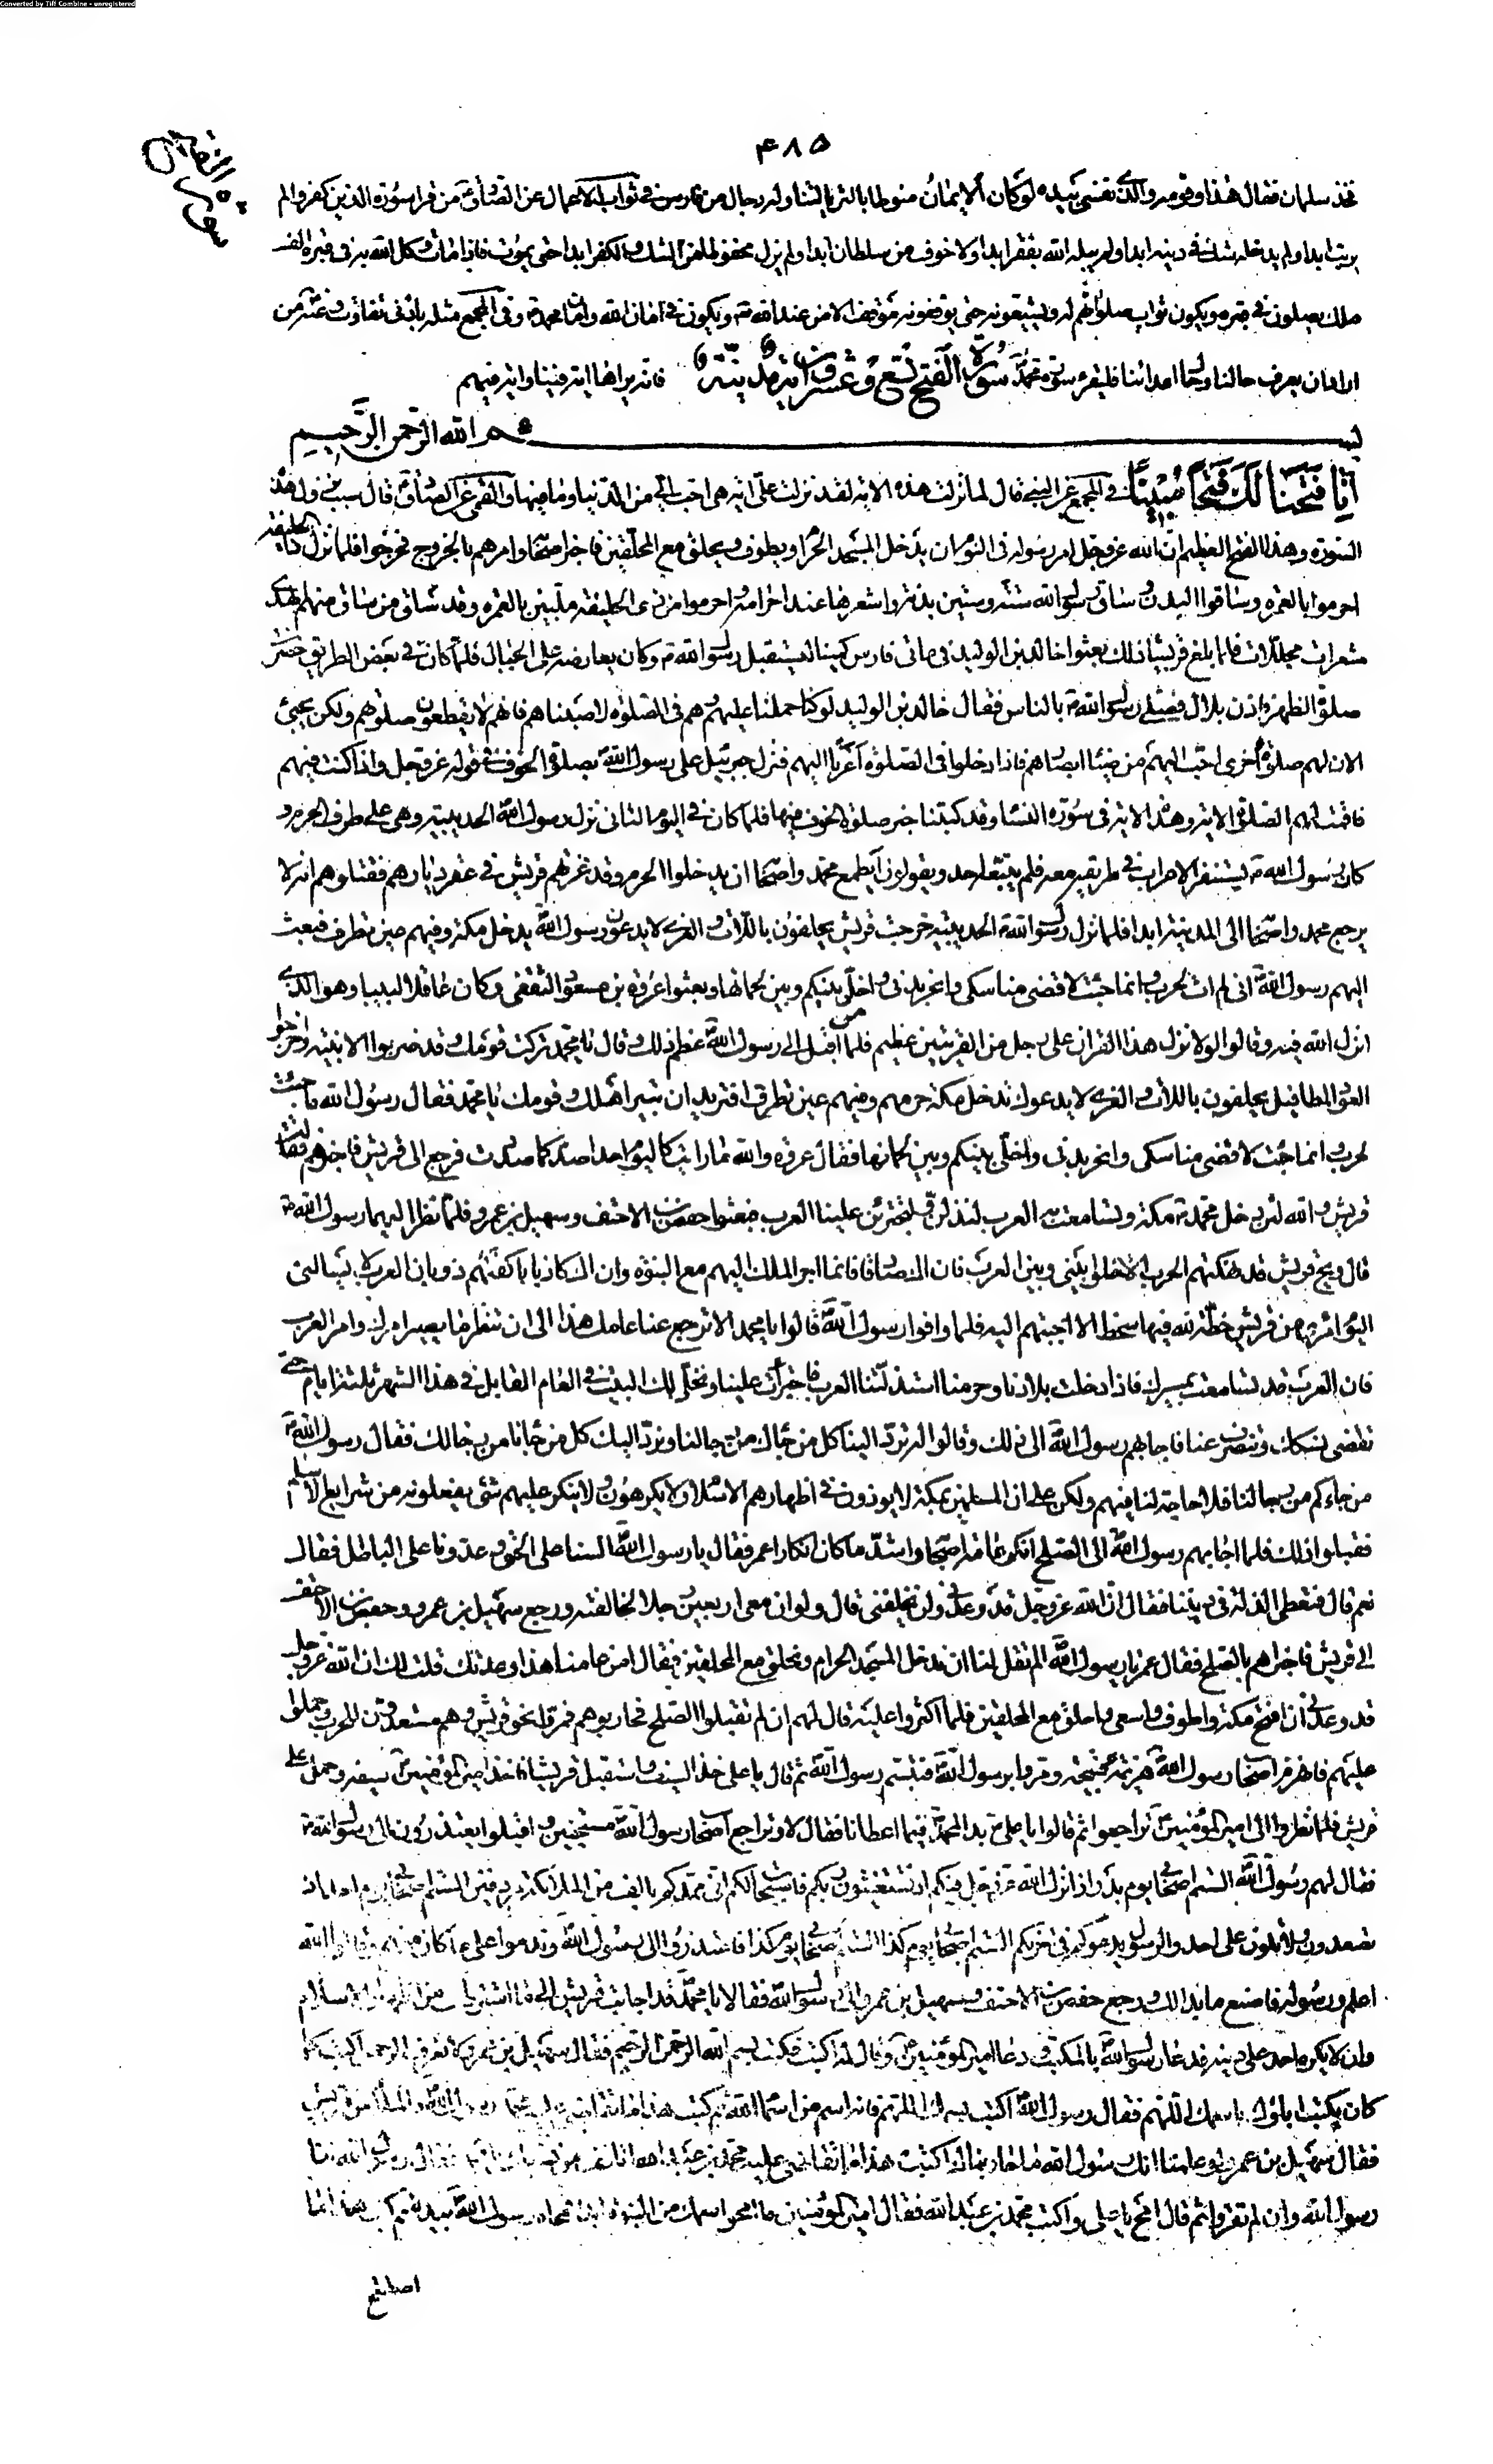 Converted by Tiff Combine - unregistered
٤٨٥
فخذ سلمان فقال هذا وقومه والذي نفسي بيده لو كان الايمان منوطا بالثريا لتناوله رجال من فارس في ثواب الاعمال عن الصادق ع من قرا سورة الذين كفروا لم
يرتب ابدا ولم يدخله شك في دينه ابدا ولم يبتله الله بفقر ابدا ولا خوف من سلطان ابدا ولم يزل محفوظا من الشك والكفر ابدا حتى يموت فاذا مات وكل الله به في قبره الف
ملك يصلون في قبره ويكون ثواب صلوتهم له ويشيعونه حتى يوقفونه موقف الامن عند الله ويكون في امان الله وامان محمد ص وفي المجمع مثله بادنى تفاوت وعنه ع من
اراد ان يعرف حالنا وحال اعدائنا فليقرء سورة محمد سورة الفتح تسع وعشرون اية مدنية فانه يراها اية فينا واية فيهم
بسم الله الرحمن الرحيم
انا فتحنا لك فتحا مبينا في المجمع عن النبي ص قال لما نزلت هذه الاية لقد نزلت علي اية هي احب الي من الدنيا وما فيها والقمي عن الصادق ع قال سبب نزول هذه
السورة وهذا الفتح العظيم ان الله عز وجل امر رسوله في النوم ان يدخل المسجد الحرام ويطوف ويحلق مع المحلقين فاخبر اصحابه وامرهم بالخروج فخرجوا فلما نزل ذا الحليفة
احرموا بالعمرة وساقوا البدن وساق رسول الله ستة وستين بدنة واشعرها عند احرامه واحرموا من ذي الحليفة ملبين بالعمرة وقد ساق من ساق منهم الهدي
مشعرات مجللات فلما بلغ قريشا ذلك بعثوا خالد بن الوليد في مأتي فارس كمينا ليستقبل رسول الله ص وكان يعارضه على الجبال فلما كان في بعض الطريق حضرت
صلوة الظهر واذن بلال فصلى رسول الله ص بالناس فقال خالد بن الوليد لو كنا حملنا عليهم وهم في الصلوة لاصبناهم فانهم لا يقطعون صلوتهم ولكن تجيئ
الان لهم صلوة اخرى احب اليهم من ضياء ابصارهم فاذا دخلوا في الصلوة اغرنا اليهم فنزل جبرئيل على رسول الله بصلوة الخوف في قوله عز وجل واذا كنت فيهم
فاقمت لهم الصلوة الاية وهذه الاية في سورة النساء وقد كتبنا خبر صلوة الخوف فيها فلما كان في اليوم الثاني نزل رسول الله الحديبية وهي على طرف الحرم و
كان رسول الله ص يستنفر الاعراب في طريقه معه فلم يتبعه احد ويقولون ايطمع محمد واصحابه ان يدخلوا الحرم وقد غزتهم قريش في عقر ديارهم فقتلوهم انه لا
يرجع محمد واصحابه الى المدينة ابدا فلما نزل رسول الله ص الحديبية خرجت قريش يحلفون باللات والعزى لا يدعون رسول الله يدخل مكة وفيهم عين تطرف فبعث
اليهم رسول الله اني لم ات لحرب وانما جئت لاقضي مناسكي وانحر بدني واخلي بينكم وبين لحمانها وبعثوا عروة بن مسعود الثقفي وكان عاقلا لبيبا وهو الذي
انزل الله فيه وقالوا لولا نزل هذا القران على رجل من القريتين عظيم فلما اقبل الى رسول الله عظم ذلك وقال يا محمد تركت قومك وقد ضربوا الابنية واخرجوا
العوذ المطافيل يحلفون باللات والعزى لا يدعوك تدخل مكة حرمهم وفيهم عين تطرف افتريد ان تبير اهلك وقومك يا محمد فقال رسول الله ما جئت
لحرب وانما جئت لاقضي مناسكي وانحر بدني واخلي بينكم وبين لحمانها فقال عروة والله ما رايت كاليوم احدا صد كما صددت فرجع الى قريش فاخبرهم فقالت
قريش والله لئن دخل محمد ص مكة وتسامعت به العرب لنذلن ولتجترئن علينا العرب فبعثوا حفص بن الاحنف وسهيل بن عمرو فلما نظر اليهما رسول الله ص
قال ويح قريش قد نهكتهم الحرب الا خلوا بيني وبين العرب فان اك صادقا فانما اجر الملك اليهم مع النبوة وان اك كاذبا كفتهم ذؤبان العرب لا يسالني
اليوم امرء من قريش خطة ليس لله فيها سخط الا اجبتهم اليه فلما وافوا رسول الله قالوا يا محمد الا ترجع عنا عامك هذا الى ان ننظر ما يصير امرك وامر العرب
فان العرب قد تسامعت بمسيرك فاذا دخلت بلادنا وحرمنا استذلتنا العرب واجترأت علينا ونخلي لك البيت في العام القابل في هذا الشهر ثلثة ايام حتى
تقضي نسكك وتنصرف عنا فاجابهم رسول الله الى ذلك وقالوا له ترد الينا كل من جاءك من رجالنا ونرد اليك كل من جاءنا من رجالك فقال رسول الله ص
من جاءكم من رجالنا فلا حاجة لنا فيهم ولكن على ان المسلمين بمكة لا يؤذون في اظهارهم الاسلام ولا يكرهون ولا ينكر عليهم شئ يفعلونه من شرايع الاسلام
فقبلوا ذلك فلما اجابهم رسول الله الى الصلح انكر عامة اصحابه واشد ما كان انكارا عمر فقال يا رسول الله السنا على الحق وعدونا على الباطل فقال
نعم قال فنعطي الذلة في ديننا فقال ان الله عز وجل قد وعدني ولن يخلفني قال ولو ان معي اربعين رجلا لخالفته ورجع سهيل بن عمرو وحفص بن الاحنف
الى قريش فاخبراهم بالصلح فقال عمر يا رسول الله الم تقل لنا ان ندخل المسجد الحرام ونحلق مع المحلقين فقال امن عامنا هذا وعدتك قلت لك ان الله عز وجل
قد وعدني ان افتح مكة واطوف واسعى واحلق مع المحلقين فلما اكثروا عليه قال لهم ان لم تقبلوا الصلح فحاربوهم فمروا نحو قريش وهم مستعدون للحرب وحملوا
عليهم فانهزم اصحاب رسول الله هزيمة قبيحة ومروا برسول الله فتبسم رسول الله ثم قال يا علي خذ السيف واستقبل قريشا فاخذ امير المؤمنين سيفه وحمل على
قريش فلما نظروا الى امير المؤمنين تراجعوا ثم قالوا يا علي بدا لمحمد فيما اعطانا فقال لا وتراجع اصحاب رسول الله مستحيين واقبلوا يعتذرون الى رسول الله ص
فقال لهم رسول الله الستم اصحابي يوم بدر اذ انزل الله عز وجل فيكم اذ تستغيثون ربكم فاستجاب لكم اني ممدكم بالف من الملائكة مردفين الستم اصحابي يوم احد اذ
تصعدون ولا تلون على احد والرسول يدعوكم في اخريكم الستم اصحابي يوم كذا الستم اصحابي يوم كذا فاعتذروا الى رسول الله وندموا على ما كان منهم وقالوا الله
اعلم ورسوله فاصنع ما بدا لك ورجع حفص بن الاحنف وسهيل بن عمرو الى رسول الله فقالا يا محمد قد اجابت قريش الى ما اشترطت من اظهار الاسلام
وان لا يكره احد على دينه فدعا رسول الله بالمكتب ودعا امير المؤمنين ع وقال له اكتب فكتب بسم الله الرحمن الرحيم فقال سهيل بن عمرو لا نعرف الرحمن اكتب كما
كان يكتب اباؤك باسمك اللهم فقال رسول الله اكتب باسمك اللهم فانه اسم من اسماء الله ثم كتب هذا ما تقاضى عليه محمد رسول الله والملأ من قريش
فقال سهيل بن عمرو لو علمنا انك رسول الله ما حاربناك اكتب هذا ما تقاضى عليه محمد بن عبد الله اتانف من نسبك يا محمد فقال رسول الله انا
رسول الله وان لم تقروا ثم قال امح يا علي واكتب محمد بن عبد الله فقال امير المؤمنين ما امحو اسمك من النبوة ابدا فمحاه رسول الله بيده ثم كتب هذا ما
اصطلح